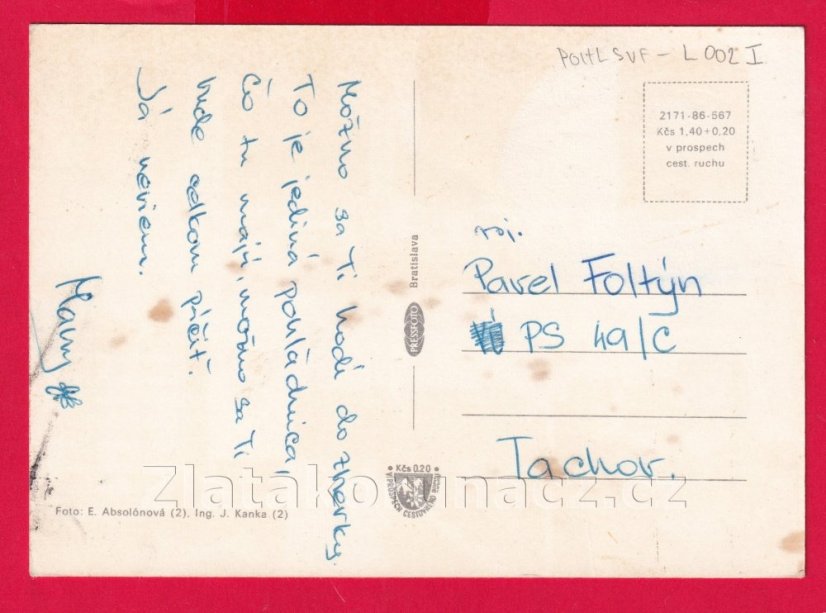 POHL SVF - L 002 I
Možno sa Ti hodí do zbierky.
To je jediná pohľadnica,
čo tu majú, možno sa Ti
bude odkom páčiť.
Já neviem.
2171-86-567
Kčs 1,40+0,20
v prospech
cest. ruchu
PRESSFOTO Bratislava
voj.
Pavel Foltýn
PS 49/C
Tachov.
• Kčs 0.20 •
V PROSPECH CESTOVNÉHO RUCHU
Zlatakorunacz.cz
Foto: E. Absolónová (2), Ing. J. Kanka (2)